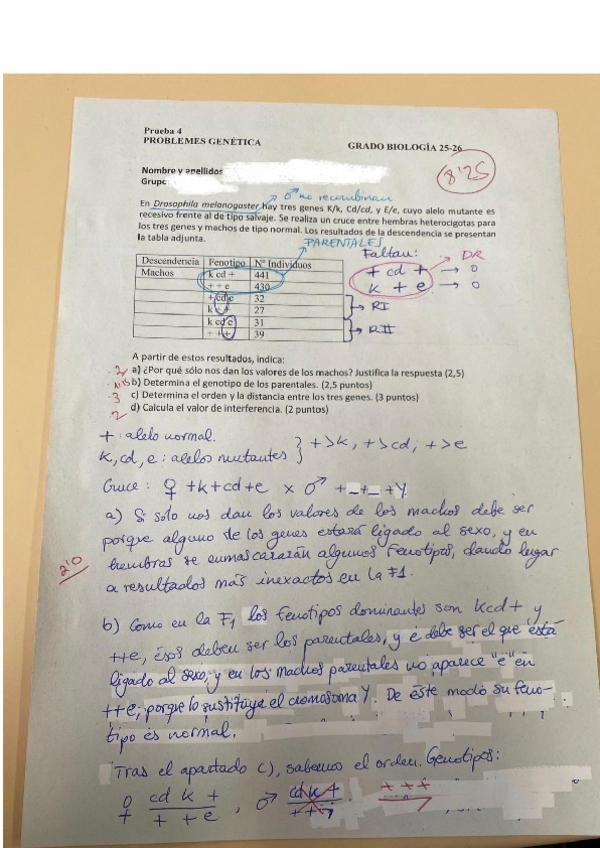 Prueba 4
PROBLEMES GENÉTICA
GRADO BIOLOGÍA 25-26
Nombre y apellidos
Grupo
8'25
♂ no recombinan
En Drosophila melanogaster hay tres genes K/k, Cd/cd, y E/e, cuyo alelo mutante es
recesivo frente al de tipo salvaje. Se realiza un cruce entre hembras heterocigotas para
los tres genes y machos de tipo normal. Los resultados de la descendencia se presentan
la tabla adjunta.
PARENTALES
Descendencia Fenotipo Nº Individuos
Machos k cd + 441
+ + e 430
+ cd e 32
k + + 27
k cd e 31
+ + + 39
Faltan: DR
+ cd + → 0
k + e → 0
→ RI
→ RII
A partir de estos resultados, indica:
a) ¿Por qué sólo nos dan los valores de los machos? Justifica la respuesta (2,5)
b) Determina el genotipo de los parentales. (2,5 puntos)
c) Determina el orden y la distancia entre los tres genes. (3 puntos)
d) Calcula el valor de interferencia. (2 puntos)
+ : alelo normal.
k, cd, e : alelos mutantes } +>k, +>cd, +>e
Cruce : ♀ +k+cd+e x ♂ +_+_+Y
a) Si solo nos dan los valores de los machos debe ser
porque alguno de los genes estará ligado al sexo, y en
hembras se enmascararán algunos fenotipos, dando lugar
a resultados más inexactos en la F1.
2'0
b) Como en la F1 los fenotipos dominantes son kcd+ y
++e, ésos deben ser los parentales, y e debe ser el que está
ligado al sexo, y en los machos parentales no aparece "e" en
++e, porque lo sustituye el cromosoma Y. De este modo su feno-
tipo es normal.
Tras el apartado c), sabemos el orden. Genotipos:
♀ cd k + , ♂ cd k + + + +
+ + e + + Y